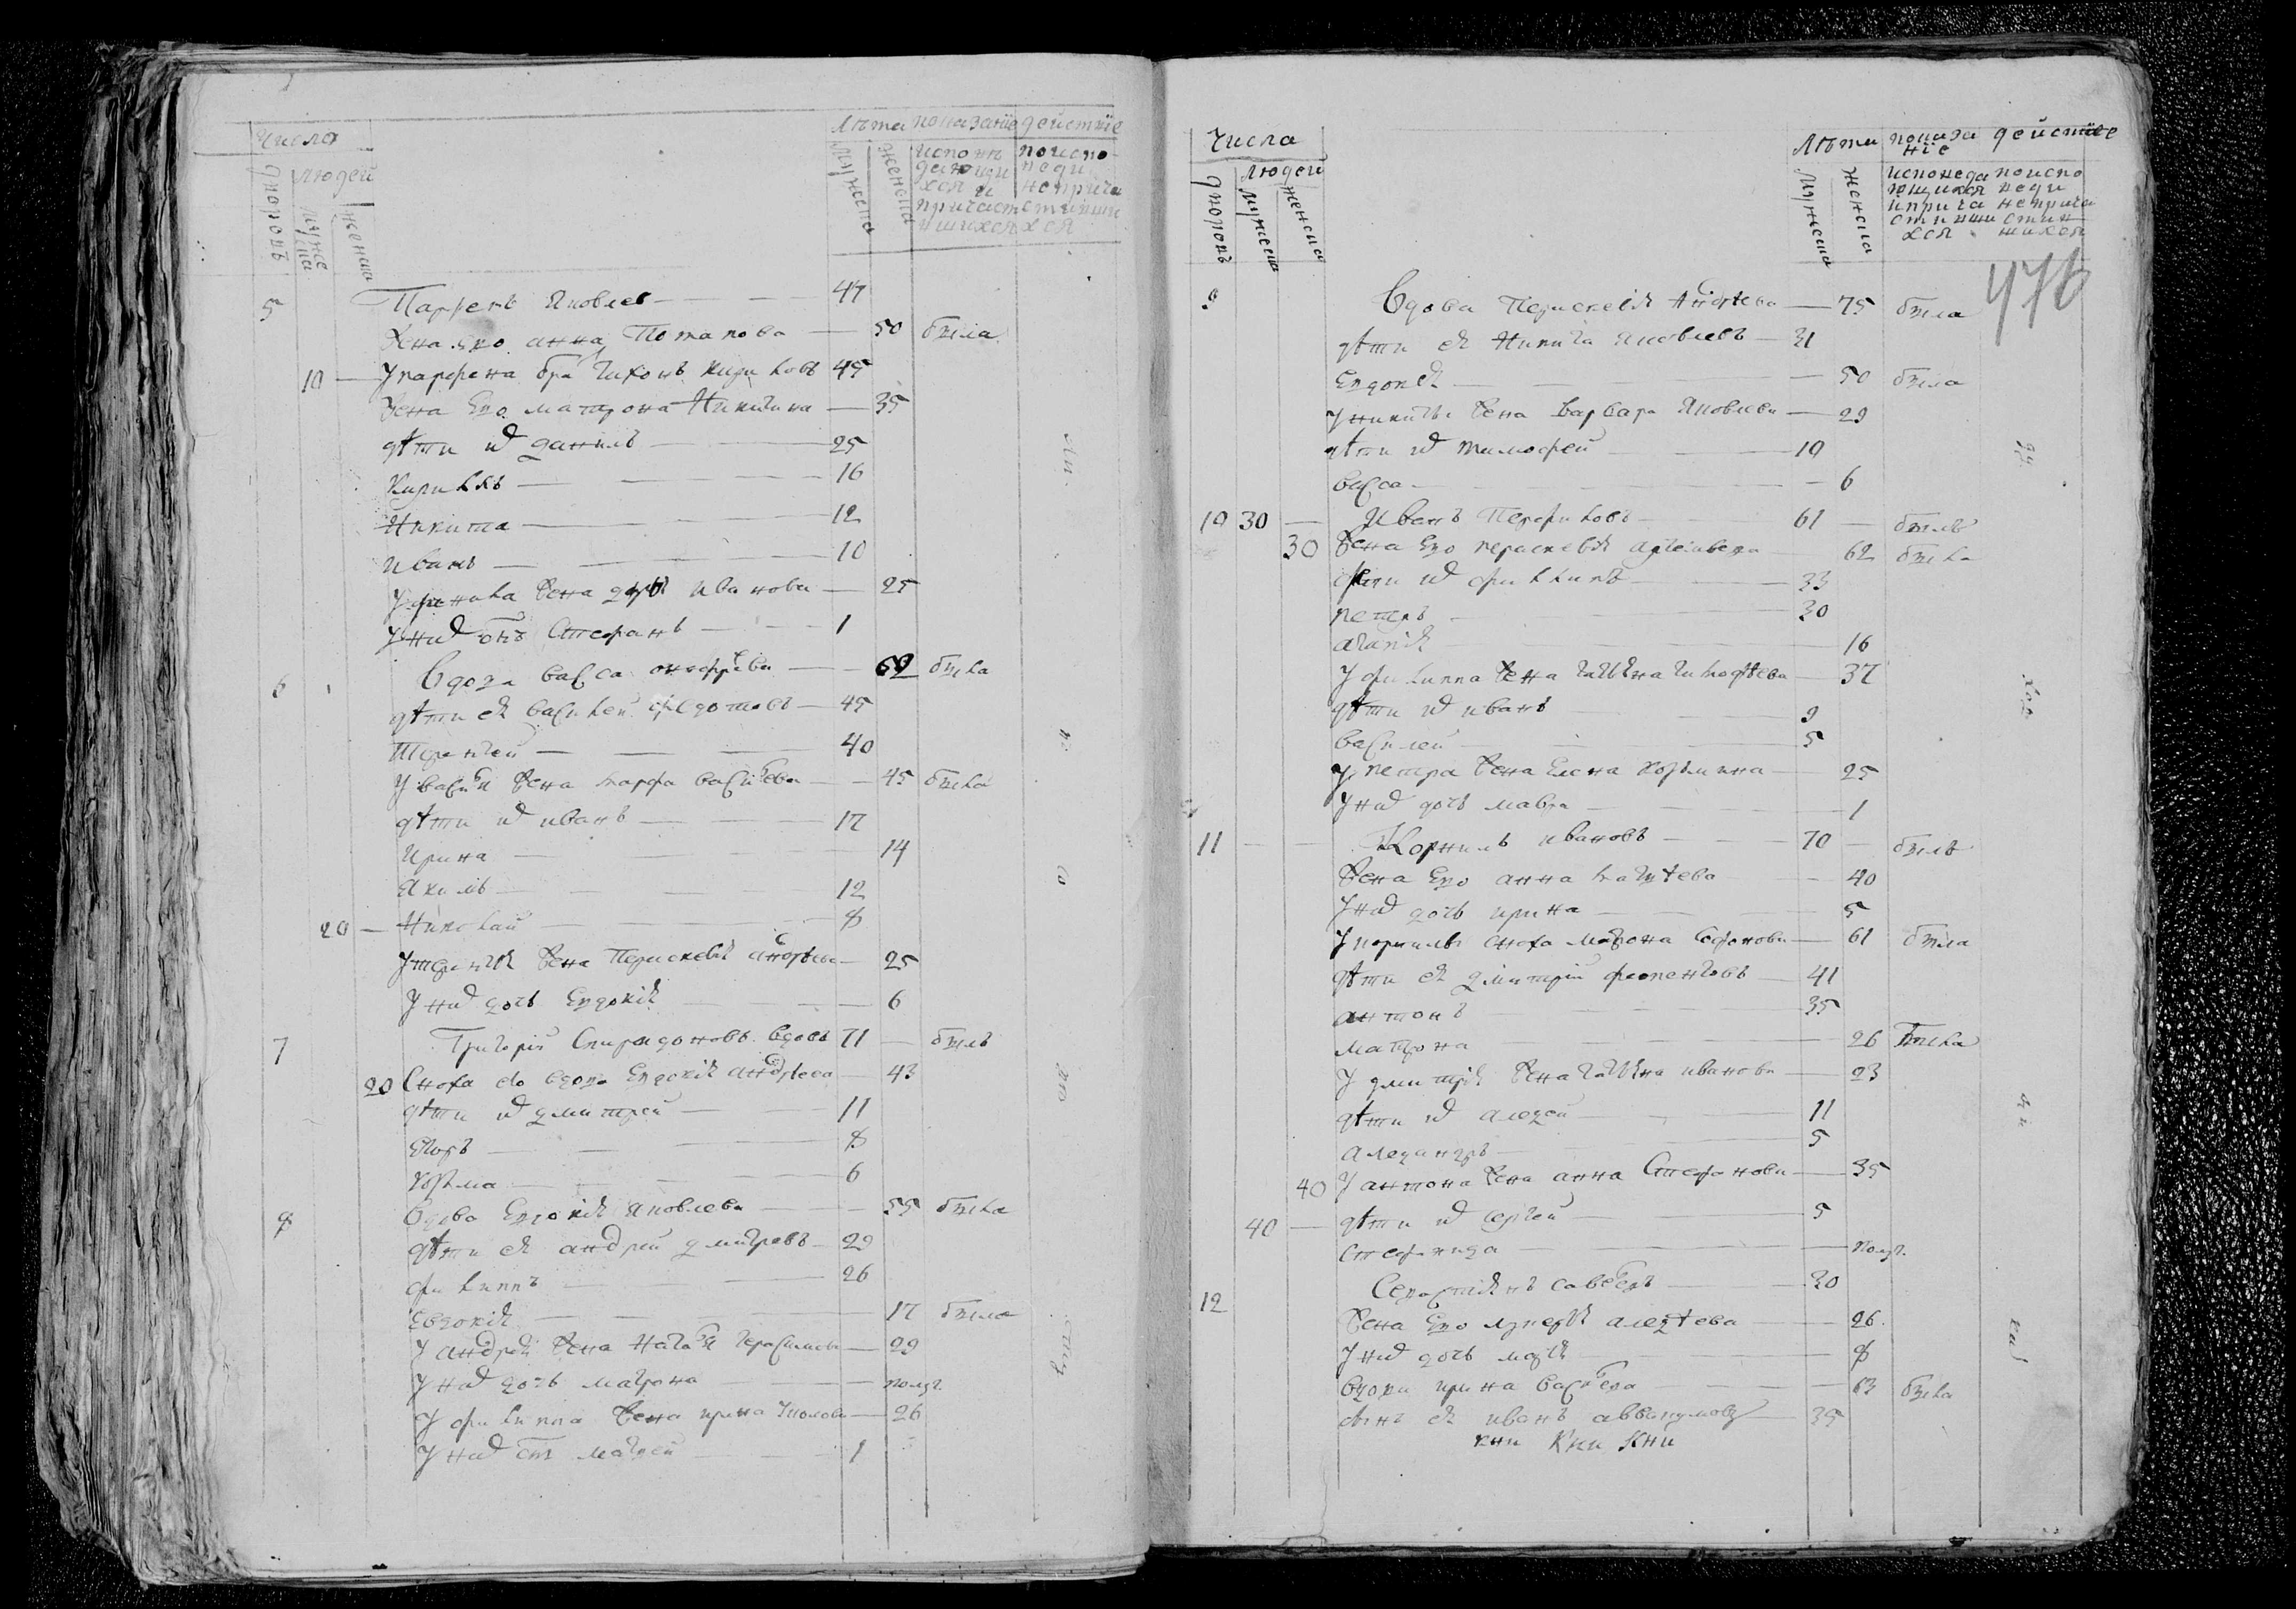 Числа
Лѣта показанiе действiе
дворовъ
людей
мужеска
женска
мужеска
женска
исповѣ
дающи
хся и
причаст
ившихся
по испо
веди
неприча
стивши
хся
5 Парфенъ Яковлев 47
Жена его анна Потапова 50 была
10 У парфена бра тихонъ Кирилловъ 45
Жена Его матрона Никитина 35
дѣти их данилъ 25
Кириллъ 16
Никита 12
Иванъ 10
У данила жена дарья Иванова 25
У них снъ Стефанъ 1
6 Вдова васса 62 была
дѣти ея василей федотовъ 45
Терентей 40
У василья жена марфа васильева 45 была
дѣти их иванъ 17
Ирина 14
Якимъ 12
20 Николай 8
У терентья жена Пераскевья андреева 25
У них дочь Евдокия 6
7 Григорiй Спиридоновъ вдовъ 71 былъ
20 Сноха его вдова Евдокия андреева 43
дѣти их дмитрей 11
Егоръ 8
Козма 6
8 Вдова Евдокия Яковлева 55 была
дѣти ея андрей дмитревъ 29
филиппъ 26
Евдокия 17 была
У андрея жена наталья герасимова 29
У них дочь матрона полуг.
У филиппа жена ирина 26
У них снъ матвей 1
Числа
Лѣта показа нiе действiе
дворовъ
людей
мужеска
женска
мужеска
женска
исповеда
ющихся
и прича
стивши
хся
по испо
веди
неприча
стив
шихся
476
9 Вдова Пераскевья Андреева 75 была
дѣти ея Никита Яковлевъ 31
Евдокея 50 была
У никиты жена варвара Яковлева 29
дѣти их тимофей 10
васса 6
10 30 Иванъ Перфиловъ 61 былъ
30 Жена Его пераскевья 62 была
дѣти их филиппъ 33
петръ 30
агапия 16
У филиппа жена татьяна тимофеева 37
дѣти их иванъ 9
василей 5
У петра жена Елена козмина 25
У них дочь мавра 1
11 Корнилъ ивановъ 70 былъ
Жена Его анна матвеева 40
У них дочь ирина 5
У корнилы сноха матрона Софонова 61 была
дѣти ея дмитрiй 41
антонъ 35
матрона 26 была
У дмитрея жена татьяна иванова 23
дѣти их алексей 11
александръ 5
40 У антона жена анна Стефанова 35
40 дѣти их сергей 5
степанида полуг.
12 Севастьянъ савельевъ 30
Жена Его лукерья алексеева 26
У них дочь марья 8
Вдова ирина васильева 63 была
сынъ ея иванъ аввакумовъ 35
кни Кни Кни